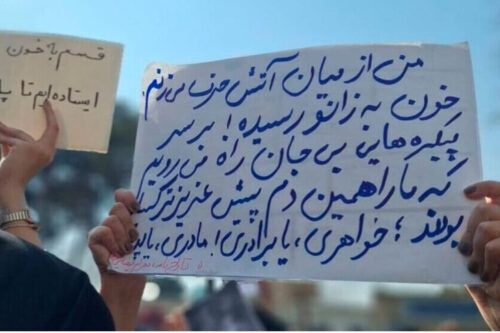 قسم به خون
ایستاده‌ایم تا پا
من از میان آتش حرف می‌زنم.
خون به زانو رسیده! بر سر
پیکرهایی بی‌جان راه می‌رویم
که ما را همین دم پیش عزیزترکسان
بودند؛ خواهری، یا برادری! مادری، یا پدر